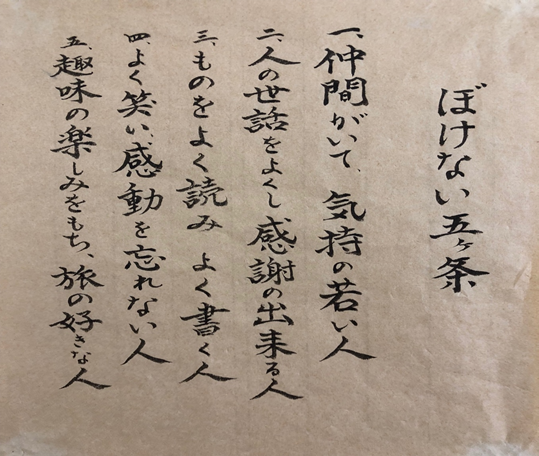 ぼけない五ヶ条
一、仲間がいて、気持の若い人
二、人の世話をよくし感謝の出来る人
三、ものをよく読みよく書く人
四、よく笑い感動を忘れない人
五、趣味の楽しみをもち、旅の好きな人